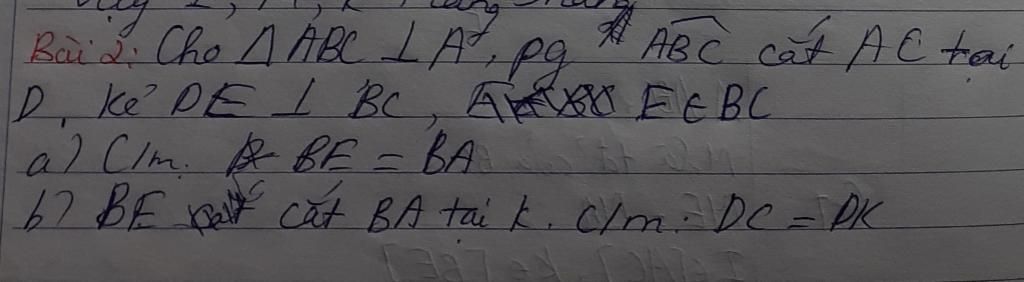 Bài 2: Cho △ ABC ⊥ A, pg ABC cắt AC tại
D, kẻ DE ⊥ BC, E ∈ BC
a) C/m. BE = BA
b) BE cắt BA tại K. C/m: DC = DK